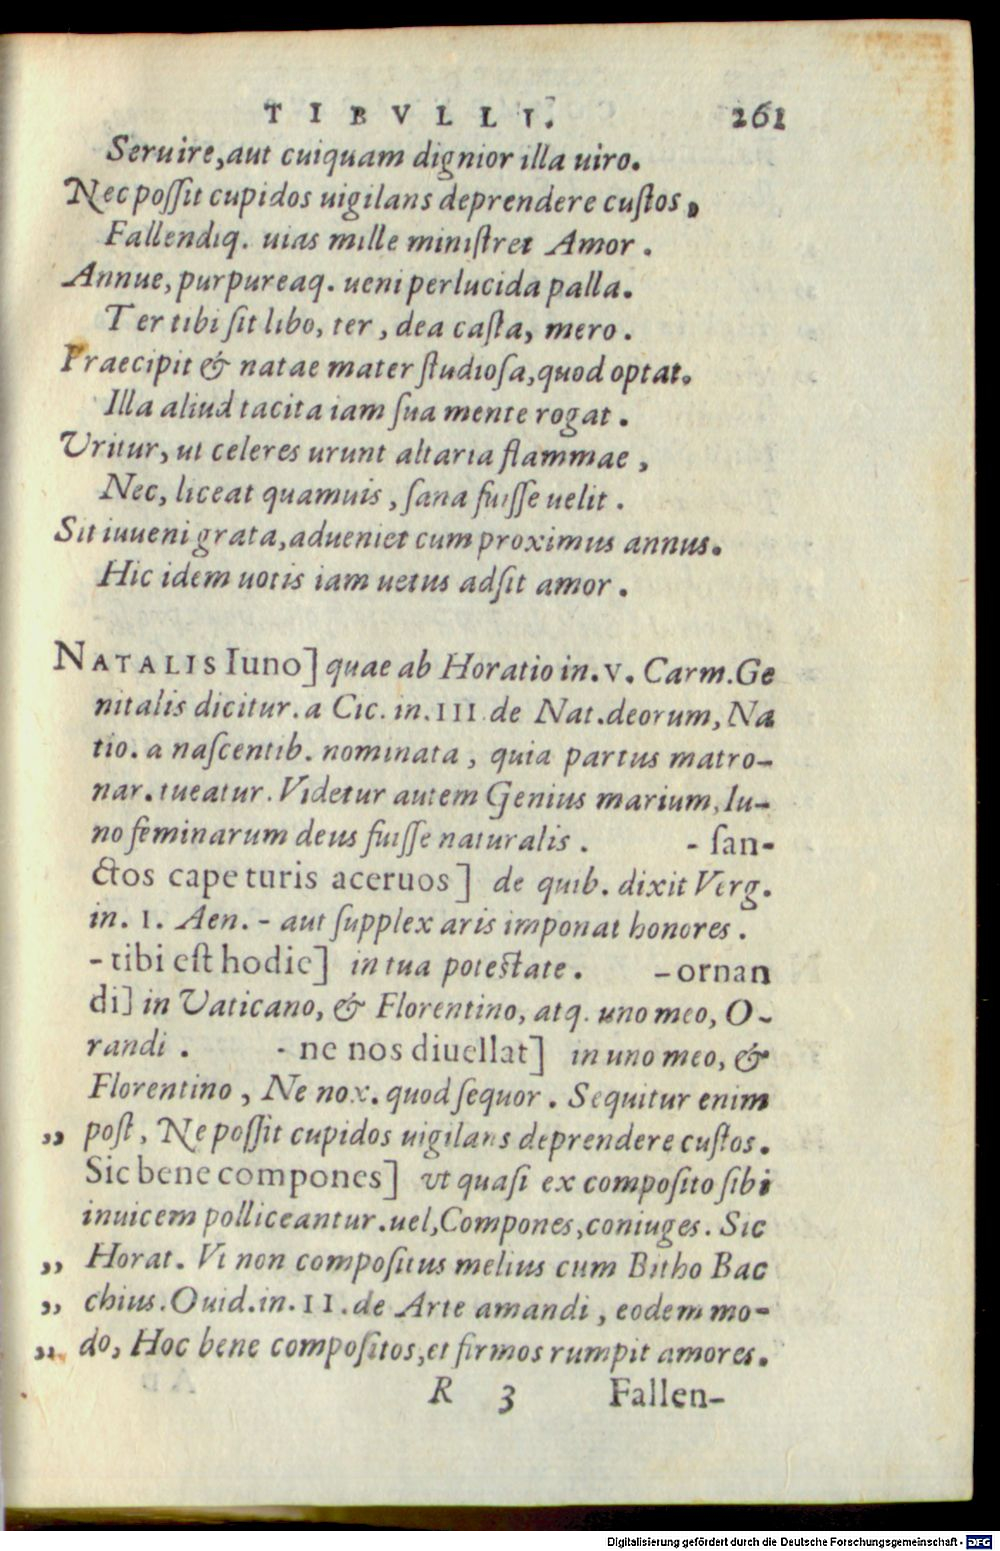 TIBVLLI. 261
Seruire,aut cuiquam dignior illa uiro.
Nec poſſit cupidos uigilans deprendere cuſtos,
Fallendiq. uias mille miniſtret Amor.
Annue, purpureaq. ueni perlucida palla.
Ter tibi ſit libo, ter, dea caſta, mero.
Praecipit & natae mater ſtudioſa, quod optat.
Illa aliud tacita iam ſua mente rogat.
Vritur, ut celeres urunt altaria flammae,
Nec, liceat quamuis, ſana fuiſſe uelit.
Sit iuueni grata, adueniet cum proximus annus.
Hic idem uotis iam uetus adſit amor.
NATALIS Iuno] quae ab Horatio in. V. Carm. Ge
nitalis dicitur. a Cic. in. III de Nat. deorum, Na
tio. a naſcentib. nominata, quia partus matro-
nar. tueatur. Videtur autem Genius marium, Iu-
no feminarum deus fuiſſe naturalis. - ſan-
ctos cape turis aceruos] de quib. dixit Verg.
in. I. Aen. - aut ſupplex aris imponat honores.
- tibi eſt hodie] in tua poteſtate. - ornan
di] in Vaticano, & Florentino, atq. uno meo, O-
randi. - ne nos diuellat] in uno meo, &
Florentino, Ne nox. quod ſequor. Sequitur enim
„ poſt, Ne poſſit cupidos uigilans deprendere cuſtos.
Sic bene compones] ut quaſi ex compoſito ſibi
inuicem polliceantur. uel, Compones, coniuges. Sic
„ Horat. Vt non compoſitus melius cum Bitho Bac
„ chius. Ouid. in. II. de Arte amandi, eodem mo-
„ do, Hoc bene compoſitos, et firmos rumpit amores.
R 3 Fallen-
Digitalisierung gefördert durch die Deutsche Forschungsgemeinschaft - DFG